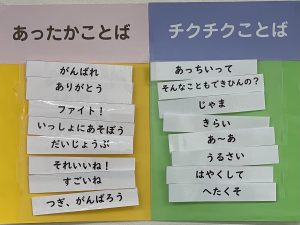 あったかことば
がんばれ
ありがとう
ファイト！
いっしょにあそぼう
だいじょうぶ
それいいね！
すごいね
つぎ、がんばろう
チクチクことば
あっちいって
そんなこともできひんの？
じゃま
きらい
あ～あ
うるさい
はやくして
へたくそ